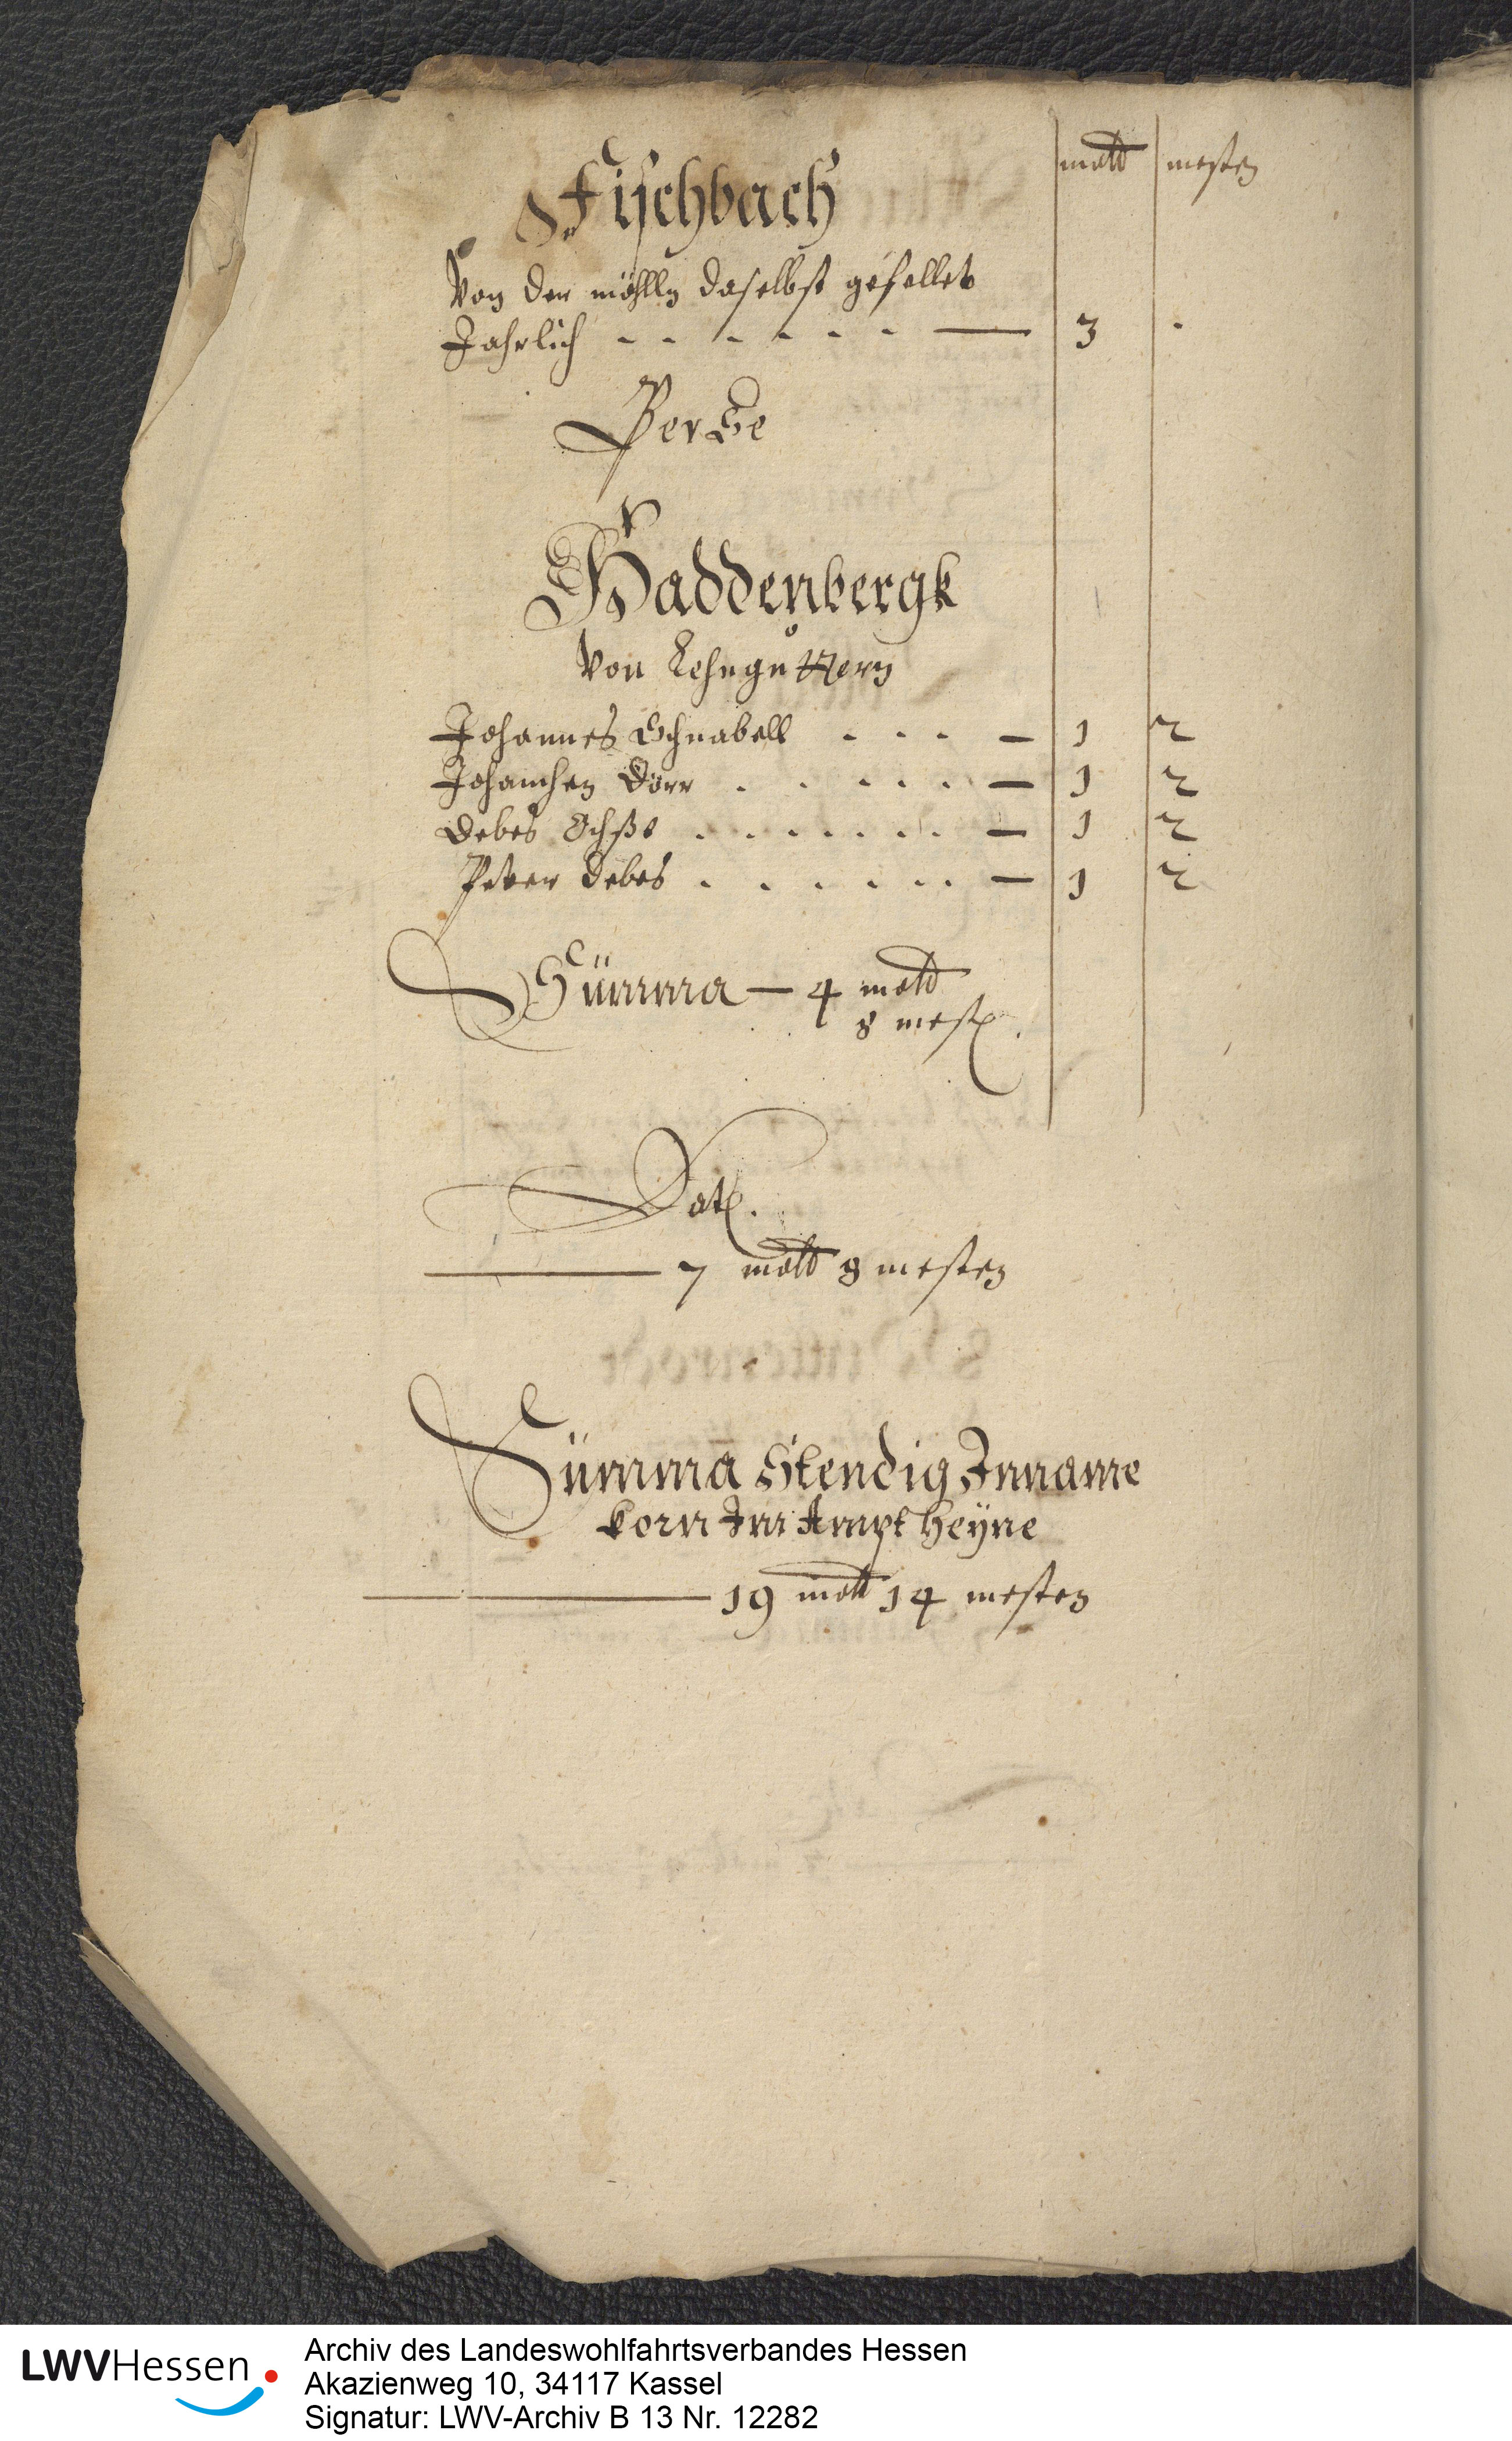 maltt mesten
Fischbach
Von der möhlln daselbst gefellet
Jahrlich 3
Per Se
Haddenbergk
Von Lehngüttern
Johannes Schnabell 1 2
Johanchen Dörr 1 2
Debes Ochße 1 2
Peter Debes 1 2
Sümma 4 maltt
8 mest.
Lat.
7 maltt 8 mesten
Sümma Stendig Inname
korn Inn Ampt Heyne
19 maltt 14 mesten
LWVHessen
Archiv des Landeswohlfahrtsverbandes Hessen
Akazienweg 10, 34117 Kassel
Signatur: LWV-Archiv B 13 Nr. 12282